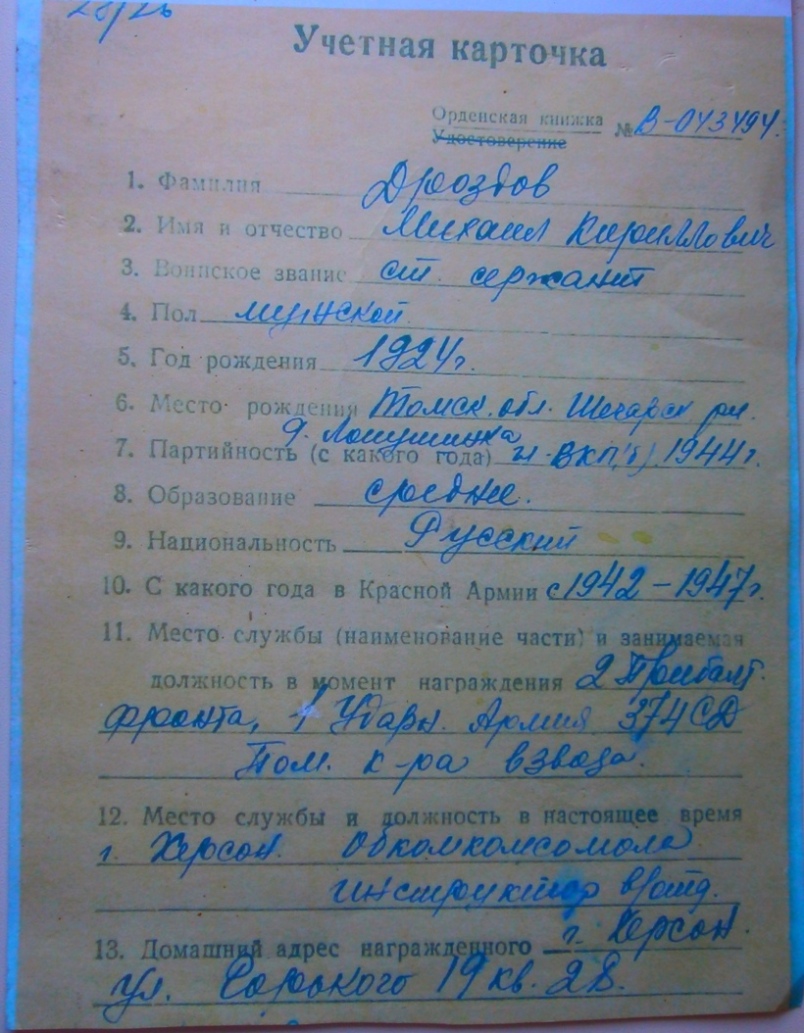 Учетная карточка
Орденская книжка
Удостоверение № В-043494.
1. Фамилия Дроздов
2. Имя и отчество Михаил Кириллович
3. Воинское звание ст. сержант
4. Пол мужской
5. Год рождения 1924г.
6. Место рождения Томск. обл. Шегарск рн.
д.
7. Партийность (с какого года) чл. ВКП(б) 1944г.
8. Образование средне.
9. Национальность Русский
10. С какого года в Красной Армии с 1942 – 1947г.
11. Место службы (наименование части) и занимаемая
должность в момент награждения 2 Прибалт.
фронта, 1 Ударн. Армия 374 СД
Пом. к-ра взвода.
12. Место службы и должность в настоящее время
г. Херсон. Обкомкомсомола
инструктор
13. Домашний адрес награжденного г. Херсон.
ул. Горького 19 кв. 28.